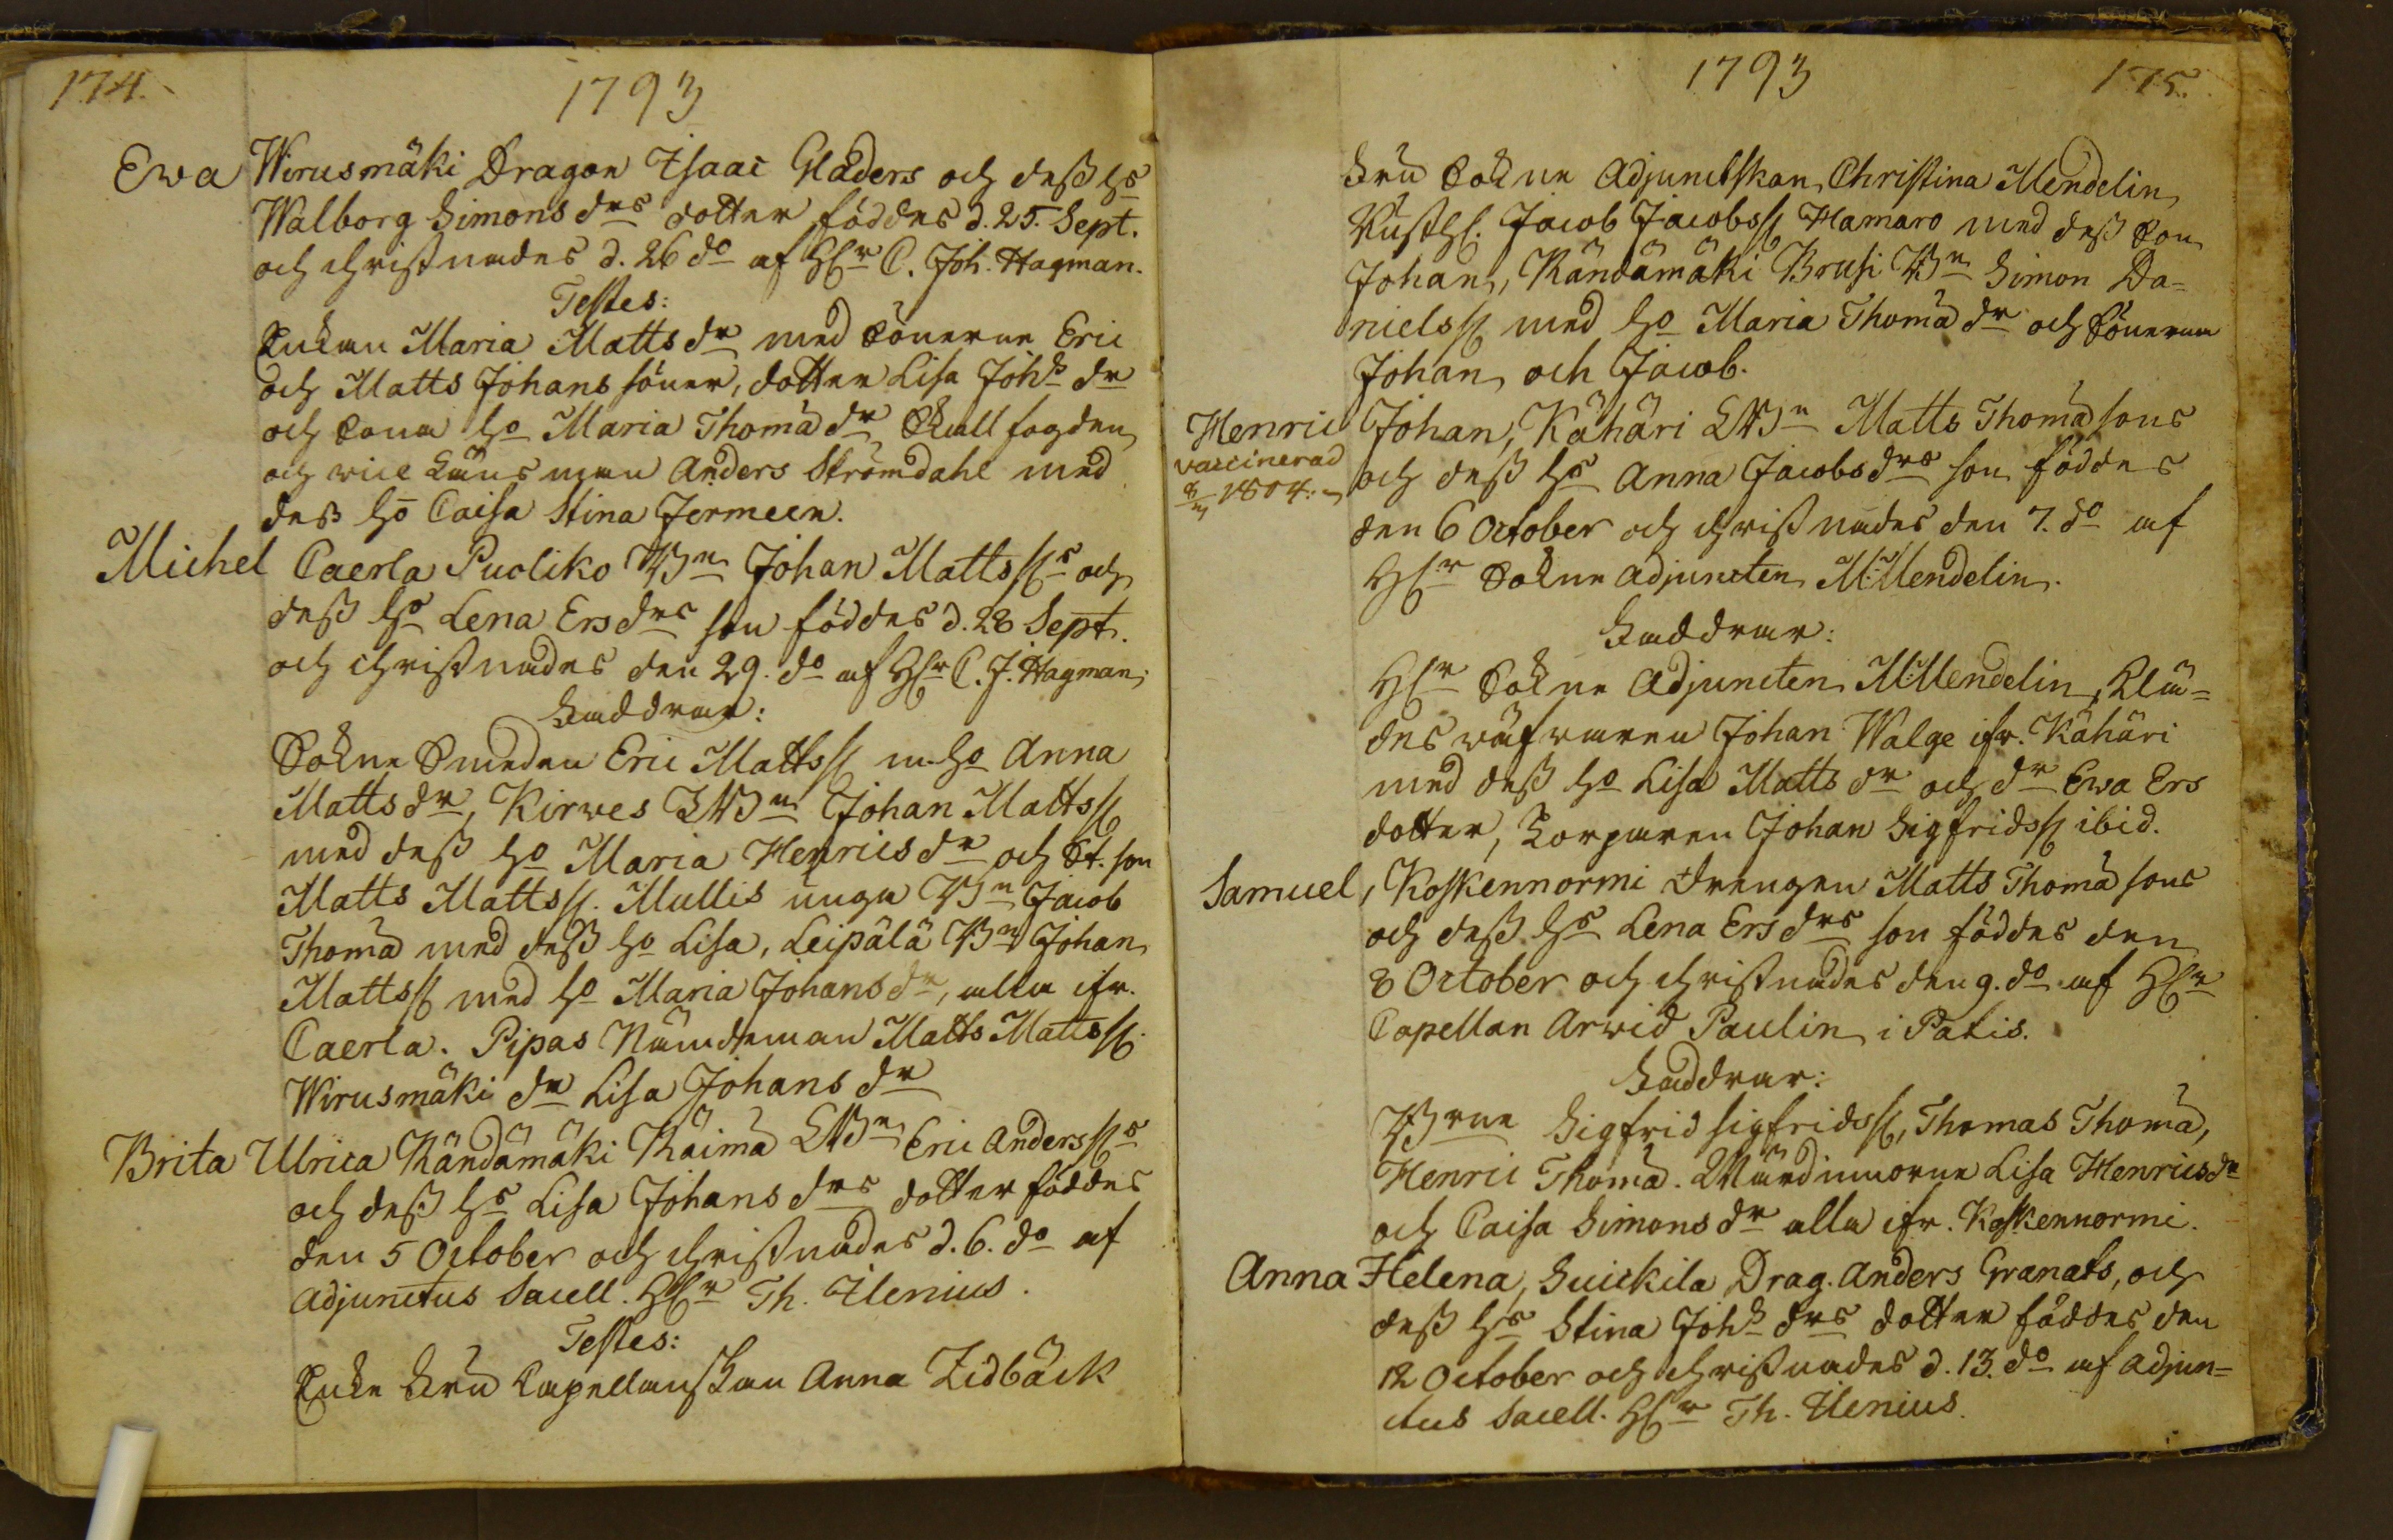 174.
1793
Ewa Wirusmäki Dragon Isaac Gladers och dess hs
Walborg Simons drs dotter föddes d. 25. Sept.
och christnades d. 26 do af Hr C. Joh. Hagman.
Testes:
Enkan Maria Matts dr med Sönerne Eric
och Matts Johans söner, dotter Lisa Johs dr
och Sona ho Maria Thomä dr, Skallfogden
och vice Länsman Anders Strömdahl med
dess ho Caisa Stina Jermeen.
Michel Caerla Puoliko Bn Johan Mattss:s och
dess hs Lena Ers drs son föddes d. 28 Sept.
och christnades den 29. do af Hr C. J. Hagman,
Faddrar:
Sokne Smeden Eric Mattss: m. ho Anna
Matts dr, Kirwes LBn Johan Mattss:
med dess ho Maria Henrics dr och St. son
Matts Mattss:. Mullis unga Bn Jacob
Thomä med dess ho Lisa, Leipälä Bn Johan
Mattss: med ho Maria Johans dr, alla ifr.
Caerla. Pipas Nämdeman Matts Mattss:.
Wirusmäki dr Lisa Johans dr
Brita Ulrica Rändämäki Räimä LBn Eric Anderss:s
och dess hs Lisa Johans drs dotter föddes
den 5 October och christnades d. 6. do af
Adjunctus Sacell. Hr Th. Ilenius.
Testes:
Enke Fru Capellanskan Anna Lidbäck
1793
175.
Fru Sokne Adjunctskan Christina Mendelin,
Rusth. Jacob Jacobss: Hamaro med dess Son
Johan, Rändämäki Brusi Bn Simon Da=
nielss: med ho Maria Thomä dr och Sönerna
Johan och Jacob.
Henric Johan, Kähäri LBn Matts Thomä sons
vaccinerad
1804.
och dess hs Anna Jacobs drs son föddes
den 6 October och christnades den 7. do af
Hr Sokne Adjuncten M: Mendelin.
Faddrar:
Hr Sokne Adjuncten M: Mendelin, Klä=
des väfvaren Johan Walge ifr. Kähäri
med dess ho Lisa Matts dr och dr Ewa Ers
dotter, Torparen Johan Sigfridss: ibid.
Samuel, Koskennormi drengen Matts Thomä sons
och dess hs Lena Ers drs son föddes den
8 October och christnades den 9. do af Hr
Capellan Arwid Paulin i Patis.
Faddrar:
Brne Sigfrid Sigfridss:, Thomas Thomä,
Henric Thomä. Wärdinnorne Lisa Henrics dr
och Caisa Simons dr alla ifr. Koskennormi.
Anna Helena, Suickila Drag. Anders Granats, och
dess hs Stina Johs drs dotter föddes den
12 October och christnades d. 13. do af Adjun=
ctus Sacell. Hr Th. Ilenius.